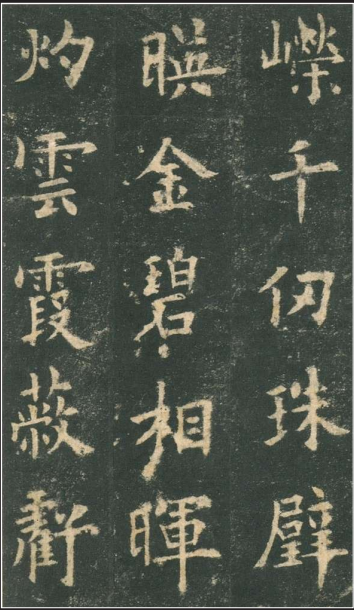 嶸千仞珠璧
暎金碧相暉
灼雲霞蔽虧